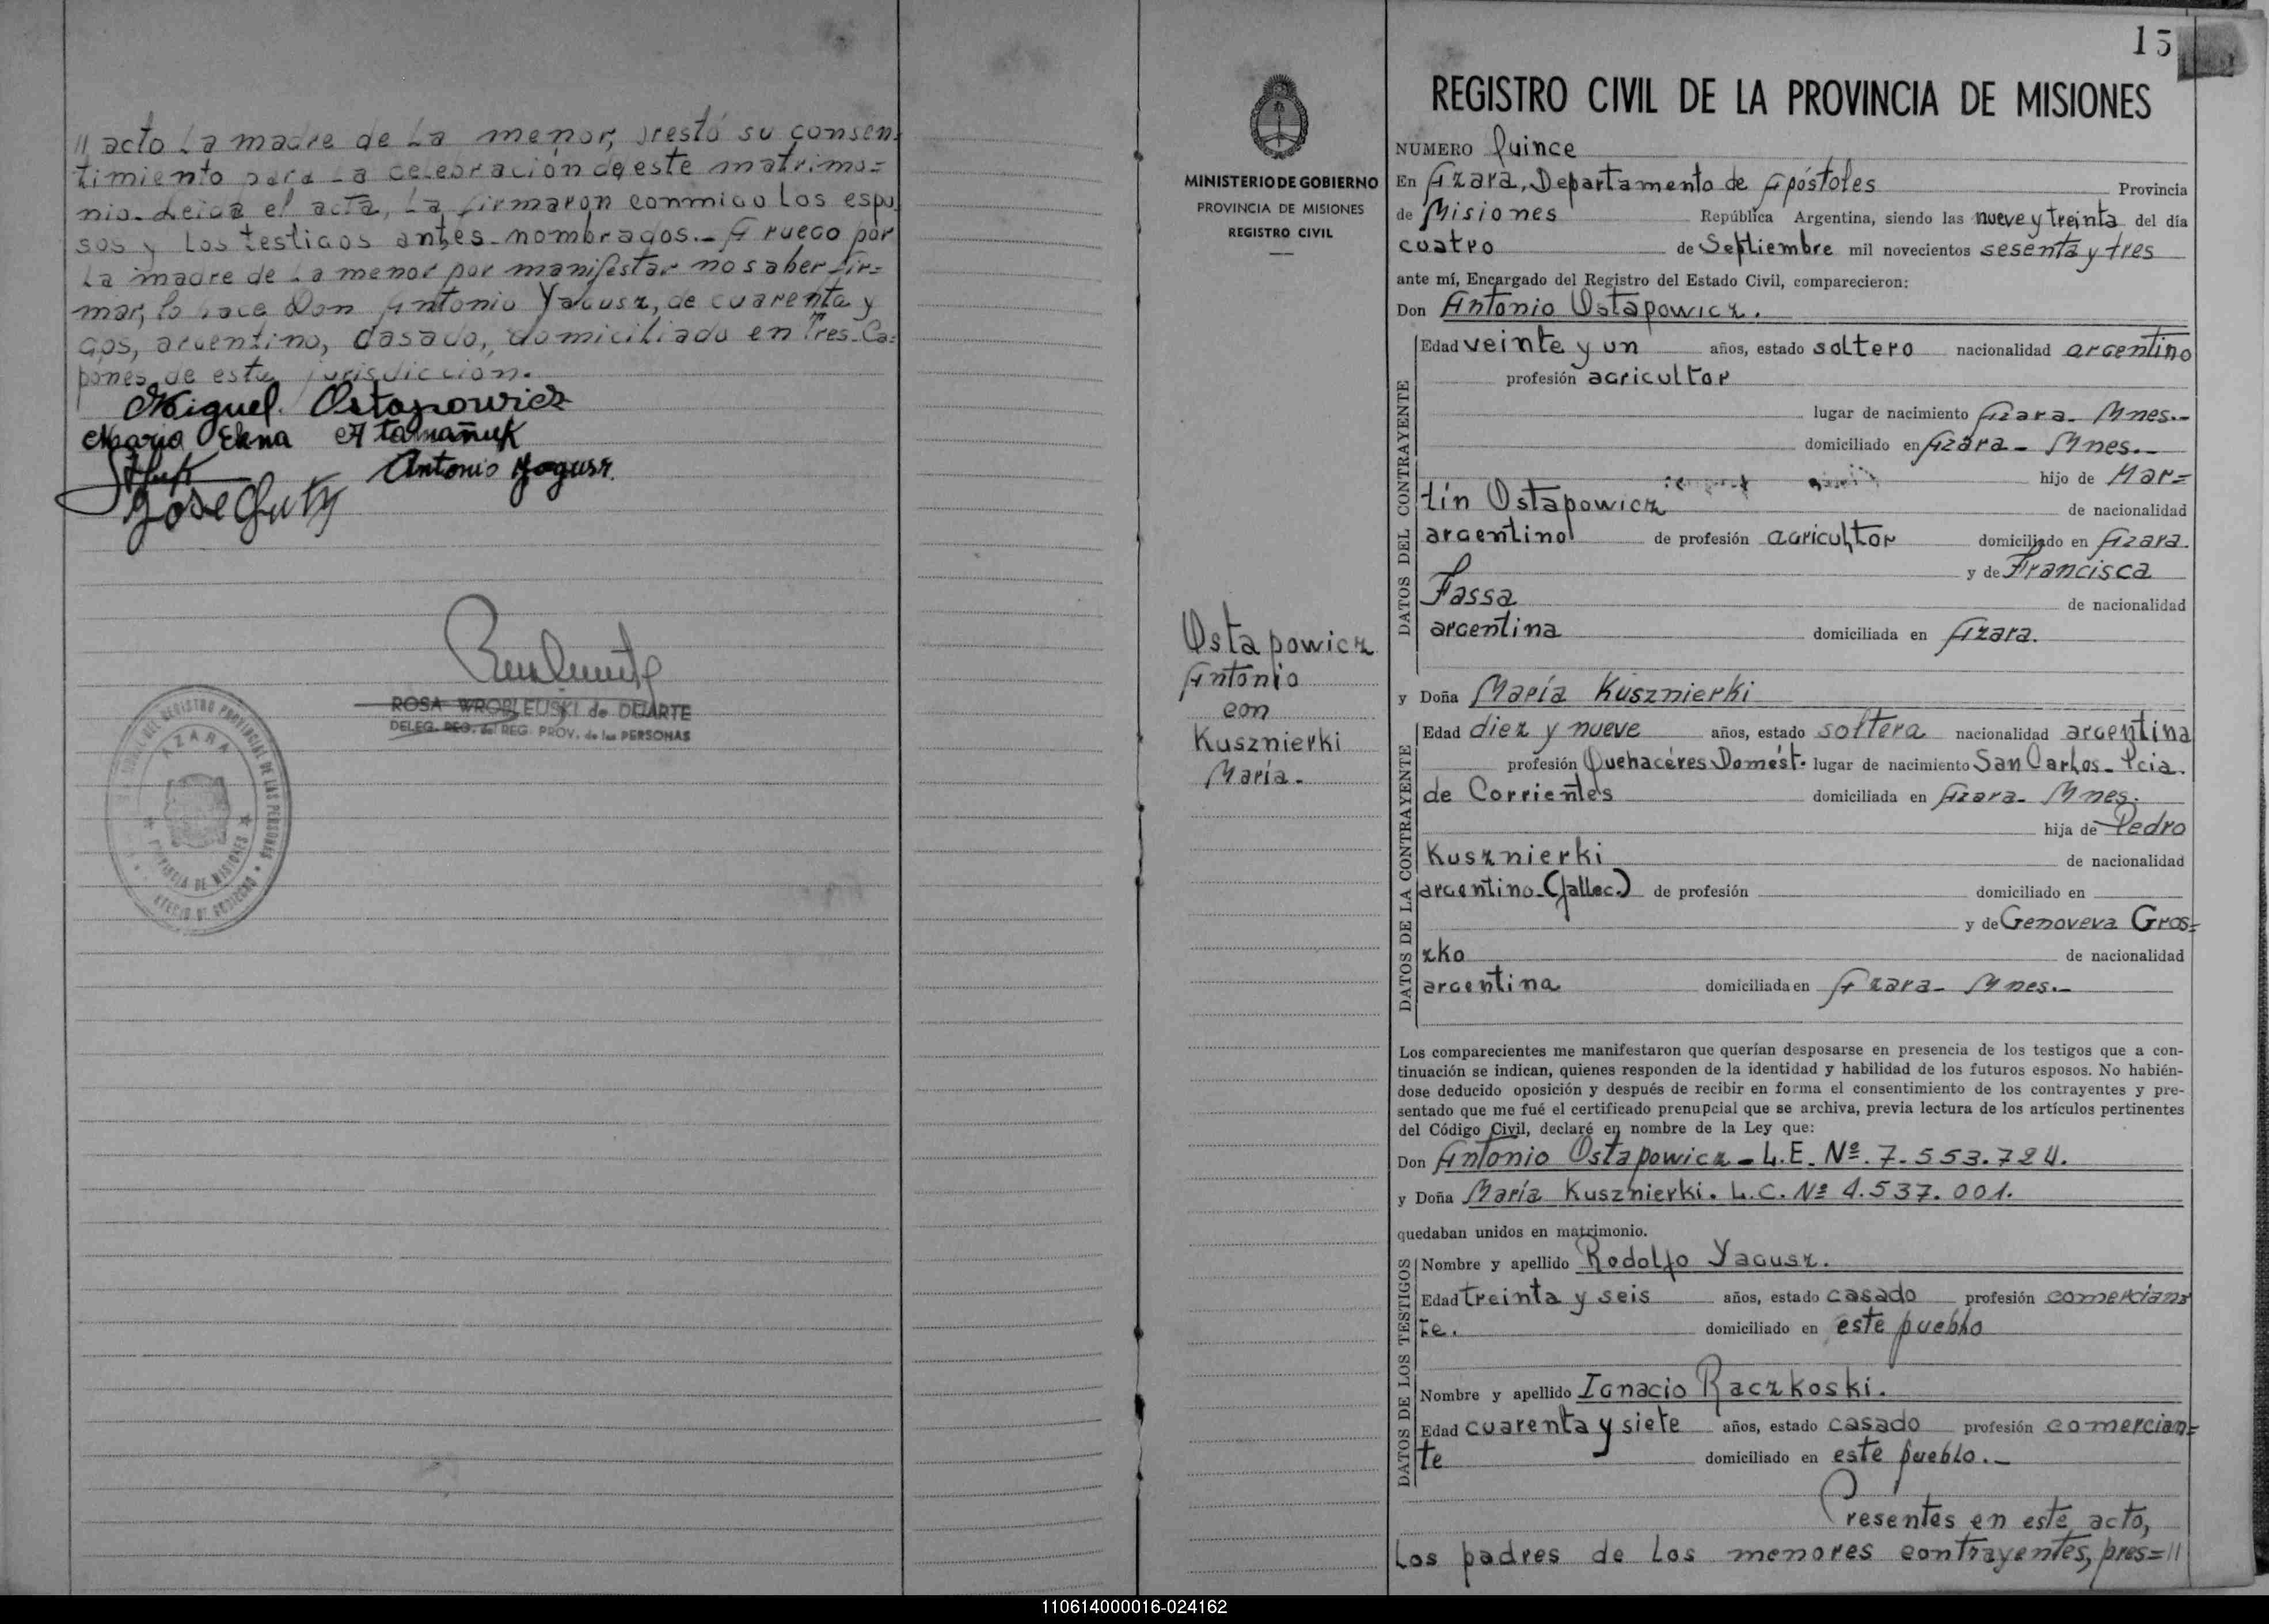 // acto la madre de la menor, prestó su consen-
timiento para la celebración de este matrimo=
nio. Leida el acta, la firmaron conmigo los espo
sos y los testigos antes nombrados.- A ruego por
la madre de la menor por manifestar no saber fir=
mar, lo hace Don Antonio Yagusz, de cuarenta y
años, argentino, casado, domiciliado en Tres Ca=
pones de esta jurisdicción.
Miguel Ostapowicz
Maria Elena Atamañuk
Antonio Yagusz
Jose Guty
ROSA WROBLEUSKI de DUARTE
DELEG. REG. del REG. PROV. de las PERSONAS
DEL REGISTRO PROVINCIAL DE LAS PERSONAS
AZARA
PROVINCIA DE MISIONES
MINISTERIO DE GOBIERNO
PROVINCIA DE MISIONES
REGISTRO CIVIL
Ostapowicz
Antonio
con
Kusznierki
María.
15
REGISTRO CIVIL DE LA PROVINCIA DE MISIONES
NUMERO Quince
En Azara, Departamento de Apóstoles Provincia
de Misiones República Argentina, siendo las nueve y treinta del día
cuatro de Septiembre mil novecientos sesenta y tres
ante mí, Encargado del Registro del Estado Civil, comparecieron:
Don Antonio Ostapowicz.
DATOS DEL CONTRAYENTE
Edad veinte y un años, estado soltero nacionalidad argentino
profesión agricultor
lugar de nacimiento Azara. Mnes.-
domiciliado en Azara - Mnes.-
hijo de Mar=
tín Ostapowicz de nacionalidad
argentino de profesión agricultor domiciliado en Azara.
y de Francisca
Fassa de nacionalidad
argentina domiciliada en Azara.
y Doña María Kusznierki
DATOS DE LA CONTRAYENTE
Edad diez y nueve años, estado soltera nacionalidad argentina
profesión Quehaceres Domést. lugar de nacimiento San Carlos - Pcia.
de Corrientes domiciliada en Azara - Mnes.
hija de Pedro
Kusznierki de nacionalidad
argentino-(fallec.) de profesión domiciliado en
y de Genoveva Gros=
zko de nacionalidad
argentina domiciliada en Azara - Mnes.-
Los comparecientes me manifestaron que querían desposarse en presencia de los testigos que a con-
tinuación se indican, quienes responden de la identidad y habilidad de los futuros esposos. No habién-
dose deducido oposición y después de recibir en forma el consentimiento de los contrayentes y pre-
sentado que me fué el certificado prenupcial que se archiva, previa lectura de los artículos pertinentes
del Código Civil, declaré en nombre de la Ley que:
Don Antonio Ostapowicz - L.E. Nº. 7.553.724.
y Doña María Kusznierki. L.C. Nº 4.537.001.
quedaban unidos en matrimonio.
DATOS DE LOS TESTIGOS
Nombre y apellido Rodolfo Yagusz.
Edad treinta y seis años, estado casado profesión comercian
te. domiciliado en este pueblo
Nombre y apellido Ignacio Raczkoski.
Edad cuarenta y siete años, estado casado profesión comercian=
te domiciliado en este pueblo.-
Presentes en este acto,
los padres de los menores contrayentes, pres=//
110614000016-024162